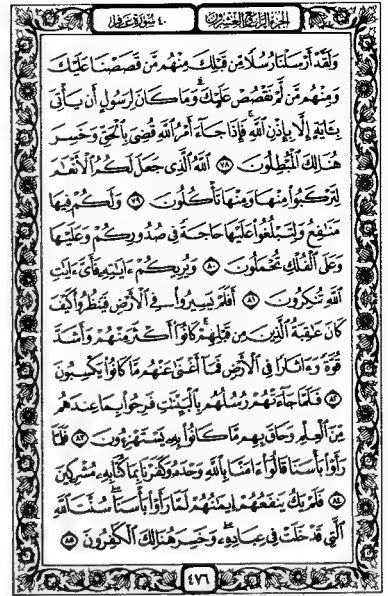 الجزء الرابع والعشرون ٤٠ سورة غافر
وَلَقَدْ أَرْسَلْنَا رُسُلًا مِّن قَبْلِكَ مِنْهُم مَّن قَصَصْنَا عَلَيْكَ
وَمِنْهُم مَّن لَّمْ نَقْصُصْ عَلَيْكَ ۗ وَمَا كَانَ لِرَسُولٍ أَن يَأْتِىَ
بِـَٔايَةٍ إِلَّا بِإِذْنِ ٱللَّهِ ۚ فَإِذَا جَآءَ أَمْرُ ٱللَّهِ قُضِىَ بِٱلْحَقِّ وَخَسِرَ
هُنَالِكَ ٱلْمُبْطِلُونَ ٧٨ ٱللَّهُ ٱلَّذِى جَعَلَ لَكُمُ ٱلْأَنْعَٰمَ
لِتَرْكَبُوا۟ مِنْهَا وَمِنْهَا تَأْكُلُونَ ٧٩ وَلَكُمْ فِيهَا
مَنَٰفِعُ وَلِتَبْلُغُوا۟ عَلَيْهَا حَاجَةً فِى صُدُورِكُمْ وَعَلَيْهَا
وَعَلَى ٱلْفُلْكِ تُحْمَلُونَ ٨٠ وَيُرِيكُمْ ءَايَٰتِهِۦ فَأَىَّ ءَايَٰتِ
ٱللَّهِ تُنكِرُونَ ٨١ أَفَلَمْ يَسِيرُوا۟ فِى ٱلْأَرْضِ فَيَنظُرُوا۟ كَيْفَ
كَانَ عَٰقِبَةُ ٱلَّذِينَ مِن قَبْلِهِمْ ۚ كَانُوٓا۟ أَكْثَرَ مِنْهُمْ وَأَشَدَّ
قُوَّةً وَءَاثَارًا فِى ٱلْأَرْضِ فَمَآ أَغْنَىٰ عَنْهُم مَّا كَانُوا۟ يَكْسِبُونَ
٨٢ فَلَمَّا جَآءَتْهُمْ رُسُلُهُم بِٱلْبَيِّنَٰتِ فَرِحُوا۟ بِمَا عِندَهُم
مِّنَ ٱلْعِلْمِ وَحَاقَ بِهِم مَّا كَانُوا۟ بِهِۦ يَسْتَهْزِءُونَ ٨٣ فَلَمَّا
رَأَوْا۟ بَأْسَنَا قَالُوٓا۟ ءَامَنَّا بِٱللَّهِ وَحْدَهُۥ وَكَفَرْنَا بِمَا كُنَّا بِهِۦ مُشْرِكِينَ
٨٤ فَلَمْ يَكُ يَنفَعُهُمْ إِيمَٰنُهُمْ لَمَّا رَأَوْا۟ بَأْسَنَا ۖ سُنَّتَ ٱللَّهِ
ٱلَّتِى قَدْ خَلَتْ فِى عِبَادِهِۦ ۖ وَخَسِرَ هُنَالِكَ ٱلْكَٰفِرُونَ ٨٥
٤٧٦